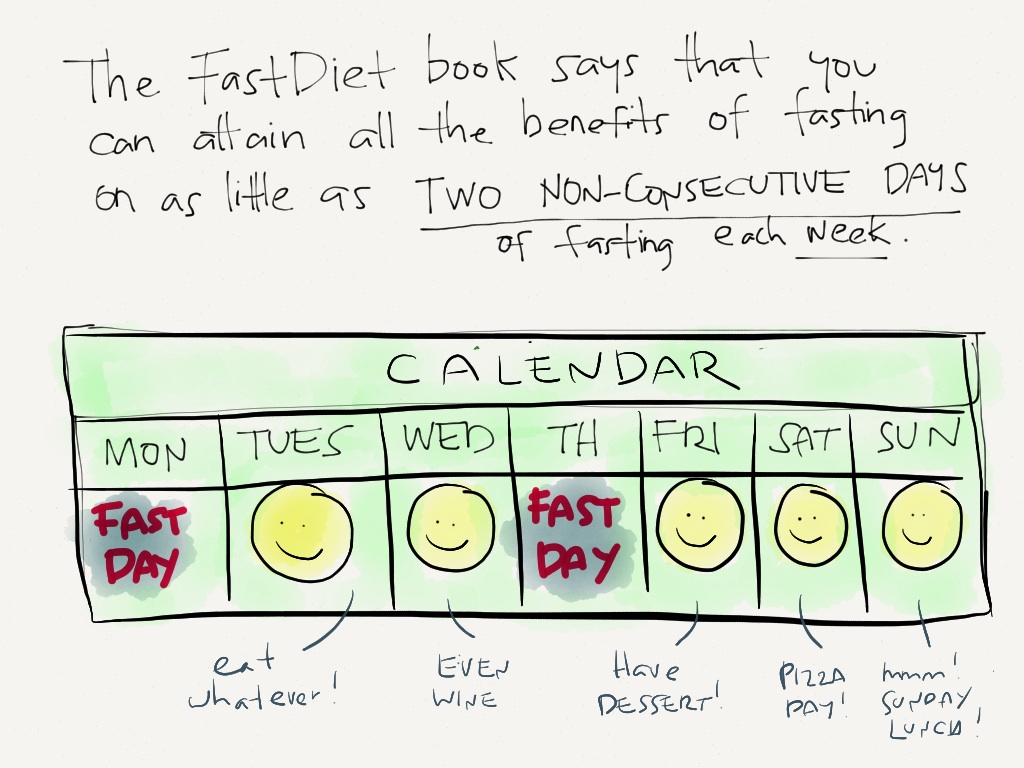 The FastDiet book says that you
can attain all the benefits of fasting
on as little as TWO NON-CONSECUTIVE DAYS
of fasting each week.
CALENDAR
MON TUES WED TH FRI SAT SUN
FAST DAY FAST DAY
eat whatever!
EVEN WINE
Have DESSERT!
PIZZA DAY!
mmm! SUNDAY LUNCH!